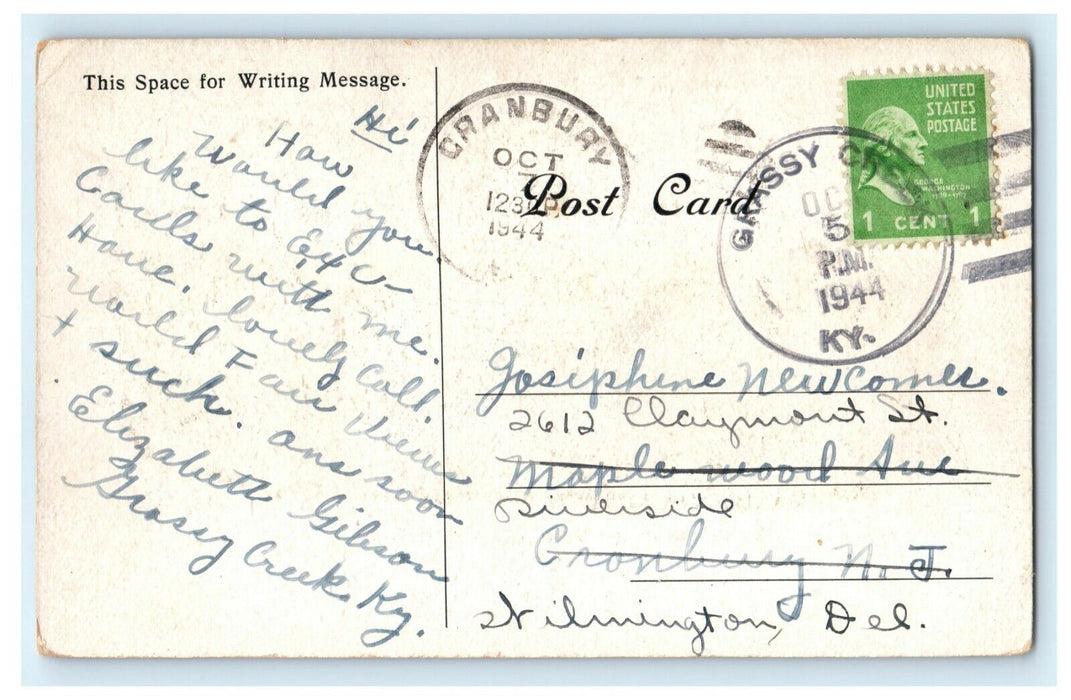 This Space for Writing Message.
Hi
How
Would you
like to Exc-
Cards with me.
Have lovely Coll.
World Fair Views
+ such. ans soon
Elizabeth Gibson
Grassy Creek Ky.
CRANBURY
OCT
1230P
1944
Post Card
GRASSY CREEK
OCT
5
P.M.
1944
KY.
UNITED
STATES
POSTAGE
GEORGE
WASHINGTON
1 CENT 1
Josiphine Newcomer.
2612 Claymont St.
Maple wood Ave
Riverside
Cronbury N. J.
Wilmington, Del.